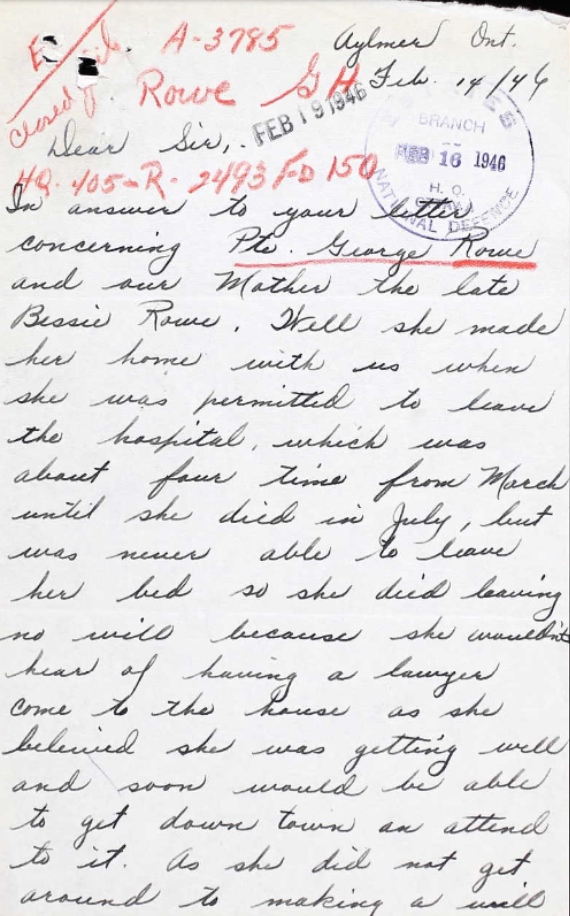 A-3785
Aylmer Ont.
Feb. 14/46
closed
Rowe G H
FEB 19 1946
BRANCH
FEB 16 1946
H. Q.
NATIONAL DEFENCE
Dear Sir,
HQ. 405-R-2493 FD 150
In answer to your letter
concerning Pte. George Rowe
and our Mother the late
Bessie Rowe. Well she made
her home with us when
she was permitted to leave
the hospital, which was
about four time from March
until she died in July, but
was never able to leave
her bed so she died leaving
no will because she wouldn't
hear of having a lawyer
come to the house as she
beleived she was getting well
and soon would be able
to get down town an attend
to it. As she did not get
around to making a will